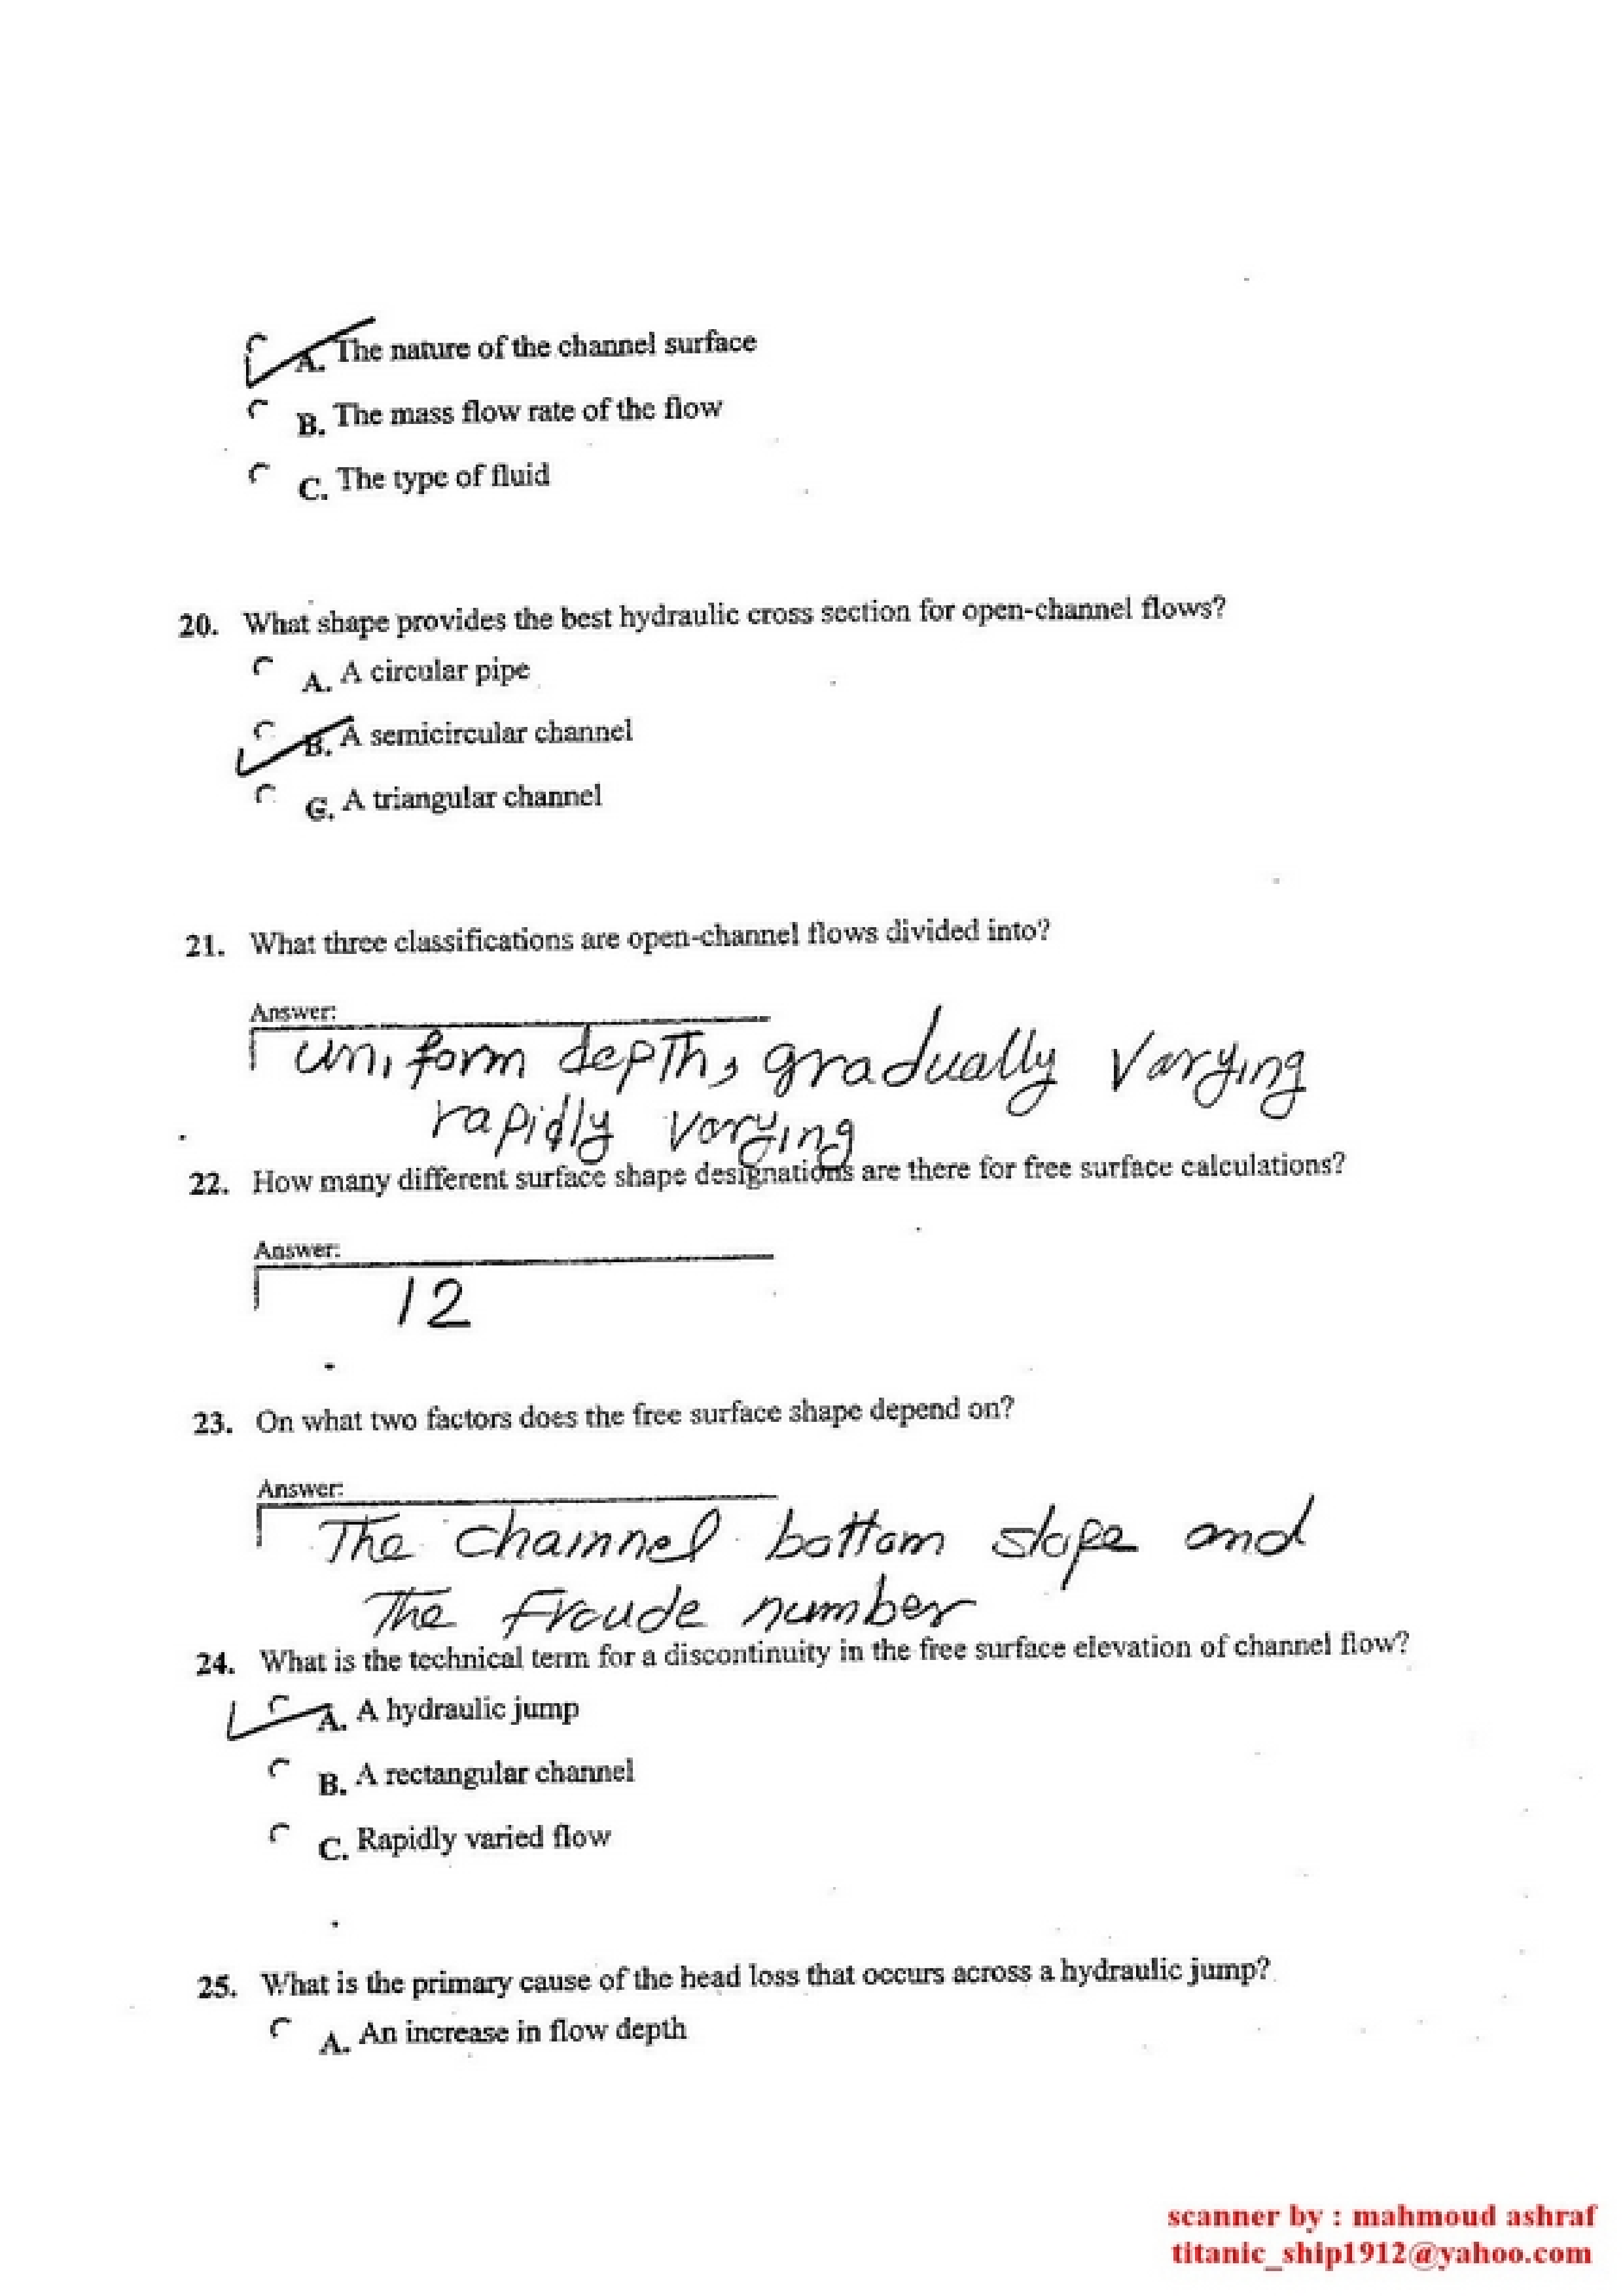 A. The nature of the channel surface
B. The mass flow rate of the flow
C. The type of fluid
20. What shape provides the best hydraulic cross section for open-channel flows?
A. A circular pipe
B. A semicircular channel
C. A triangular channel
21. What three classifications are open-channel flows divided into?
Answer:
uniform depth, gradually varying
rapidly varying
22. How many different surface shape designations are there for free surface calculations?
Answer:
12
23. On what two factors does the free surface shape depend on?
Answer:
The chainnel bottom slope and
The Froude number
24. What is the technical term for a discontinuity in the free surface elevation of channel flow?
A. A hydraulic jump
B. A rectangular channel
C. Rapidly varied flow
25. What is the primary cause of the head loss that occurs across a hydraulic jump?
A. An increase in flow depth
scanner by : mahmoud ashraf
titanic_ship1912@yahoo.com